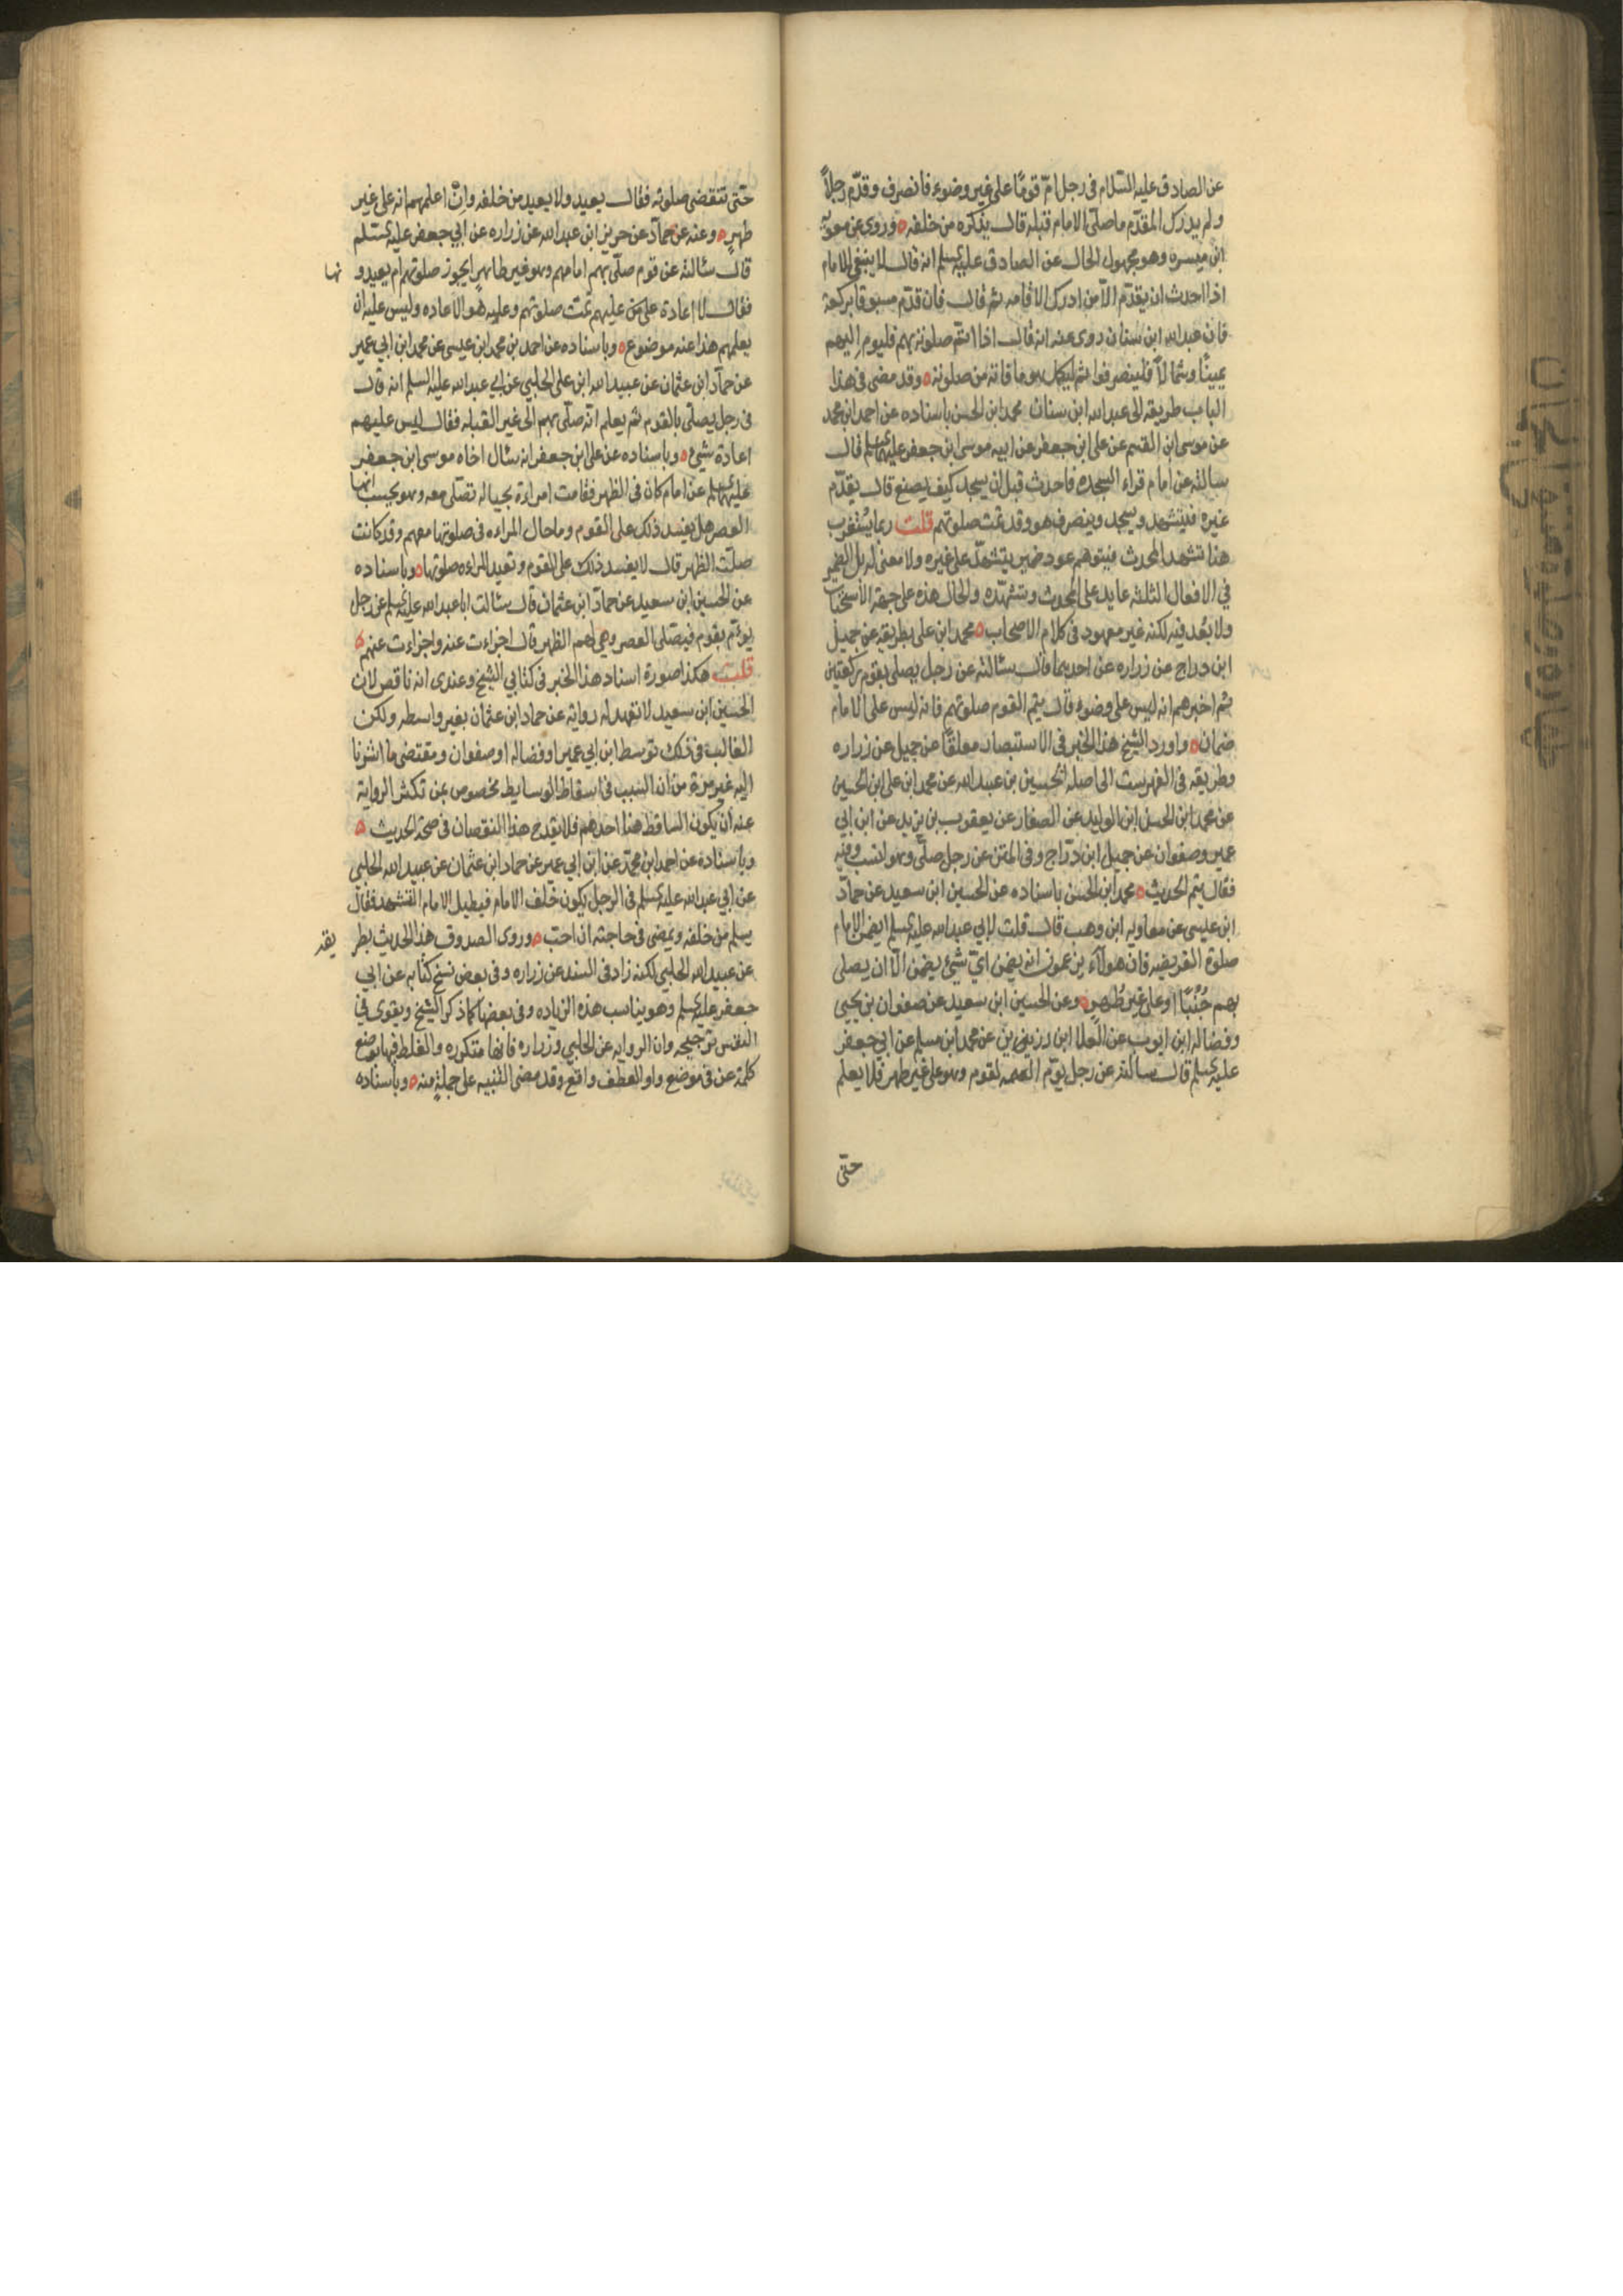 عن الصادق عليه السّلام في رجل امّ قومًا على غير وضوء فانصرف وقدّم رجلاً
ولم يدرك المقدّم ما صلّى الامام قبله قال يذكره من خلفه ه وروى عن معويه
ابن ميسرة وهو مجهول الحال عن الصادق عليه السلم انه قال لا ينبغي للامام
اذا احدث ان يقدّم الاّ من ادرك الاقامه ثم قال فان قدّم مسبوقا بركعة
فان عبدالله ابن سنان روى عنه انه قال اذا اتمّ صلوته بهم فليوم اليهم
يمينًا وشمالاً فلينصرفوا ثم ليكمل هو ما فاته من صلوته ه وقد مضى في هذا
الباب طريقه الى عبدالله ابن سنان محمد ابن الحسن باسناده عن احمد ابن محمد
عن موسى ابن القسم عن على ابن جعفر عن اخيه موسى ابن جعفر عليهما السلم قال
سالته عن امام قراء السجده فاحدث قبل ان يسجد كيف يصنع قال يقدّم
غيره فيتشهد ويسجد وينصرف هو وقد تمت صلوتهم قلت ربما يستغرب
هذا تشهد المحدث فيتوهم عود ضمير يتشهد على غيره ولا معنى له بل الضمير
في الافعال الثلثه عايد على المحدث وتشهّده والحال هذه على جهة الاستحباب
ولا بُعد فيه لكنه غير معهود في كلام الاصحاب ه محمد ابن على بطريقه عن جميل
ابن دراج عن زراره عن احدهما قال سئالته عن رجل يصلى بقوم ركعتين
ثم اخبرهم انه ليس على وضوء قال يتم القوم صلوتهم فانه ليس على الامام
ضمان ه واورد الشيخ هذا الخبر في الاستبصار معلقًا عن جميل عن زراره
وطريقه في الفهرست الى اصله الحسين بن عبيدالله عن محمد ابن على ابن الحسين
عن محمد ابن الحسن ابن الوليد عن الصفار عن يعقوب بن يزيد عن ابن ابي
عمير وصفوان عن جميل ابن درّاج وفي المتن عن رجل صلّى وهو انسب وفيه
فقال يتم الحديث ه محمد ابن الحسن باسناده عن الحسين ابن سعيد عن حمّاد
ابن عيسى عن معاويه ابن وهب قال قلت لابي عبدالله عليه السلم ايضمن الامام
صلوة الفريضه فان هولآء يزعمون انه يضمن قال لا يضمن ايّ شيئ يضمن الّا ان يصلى
بهم جُنُبًا او على غير طُهر ه وعن الحسين ابن سعيد عن صفوان بن يحيى
وفضاله ابن ايوب عن العلا ابن رزين عن محمد ابن مسلم عن ابي جعفر
عليه السلم قال سالته عن رجل يؤمّ القوم وهو على غير طهر فلا يعلم
حتّى
حتّى تنقضى صلوته فقال يعيد ولا يعيد من خلفه وانْ اعلمهم انه على غير
طهرٍ ه وعنه عن حمّاد عن حريز ابن عبدالله عن زراره عن ابي جعفر عليه السّلم
قال سئالته عن قوم صلّى بهم امامهم وهو غير طاهر ايجوز صلوتهم ام يعيدونها
فقال لا اعادة عليهم تمت صلوتهم وعليه هو الاعاده وليس عليه ان
يعلمهم هذا عنه موضوع ه وباسناده عن احمد بن محمد ابن عيسى عن محمد ابن ابي عمير
عن حمّاد ابن عثمان عن عبيدالله ابن على الحلبي عن ابي عبدالله عليه السلم انه قال
في رجل يصلّى بالقوم ثم يعلم انّه صلّى بهم الى غير القبله فقال ليس عليهم
اعادة شيئ ه وباسناده عن على ابن جعفر انه سئال اخاه موسى ابن جعفر
عليهما السلم عن امام كان في الظهر فقامت امراءة بحياله تصلّى معه وهو يحسب انها
العصر هل يفسد ذلك على القوم وما حال المراءه في صلوتها معهم وقد كانت
صلّت الظهر قال لا يفسد ذلك على القوم وتعيد المراءه صلوتها ه وباسناده
عن الحسين ابن سعيد عن حمّاد ابن عثمان قال سئالت اباعبدالله عليه السلم عن رجل
يوءمّ بقوم فيصلى العصر وهي لهم الظهر قال اجزاءت عنه واجزاءت عنهم ه
قلت هكذا صورة اسناد هذا الخبر في كتابي الشيخ وعندى انه ناقص لان
الحسين ابن سعيد لا تعهد له روايه عن حماد ابن عثمان بغير واسطه ولكن
الغالب في ذلك توسط ابن ابي عمير او فضاله او صفوان ومقتضى ما اشرنا
اليه غير مرة من ان السبب في اسقاط الوسايط مخصوص بمن تكثر الرواية
عنه أن يكون الساقط هنا احدهم فلا يقدح هذا النقصان في صحة الحديث ه
وباسناده عن احمد ابن محمّد عن ابن ابي عمير عن حماد ابن عثمان عن عبيدالله الحلبي
عن ابي عبدالله عليه السلم في الرجل يكون خلف الامام فيطيل الامام التشهد فقال
يسلم من خلفه ويمضى في حاجته ان احبّ ه وروى الصدوق هذا الحديث بطريقه
عن عبيدالله الحلبي لكنه زاد في السند عن زراره وفي بعض نسخ كتابه عن ابي
جعفر عليه السلم وهو يناسب هذه الزياده وفي بعضها كما ذكر الشيخ ويقوى في
النفس ترجيحه وان الروايه عن الحلبي وزراره فانها متكرره والغلط فيها بوضع
كلمة عن في موضع واو العطف واقع وقد مضى التنبيه على جملةٍ منه ه وباسناده